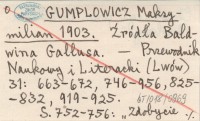 GUMPLOWICZ Maksy-
milian 1903. Źródła Bald-
wina Gallusa. — Przewodnik
Naukowy i Literacki (Lwów)
31: 663-672, 746-956, 825-
-832, 919-925.
S. 752-756: "zdobycie